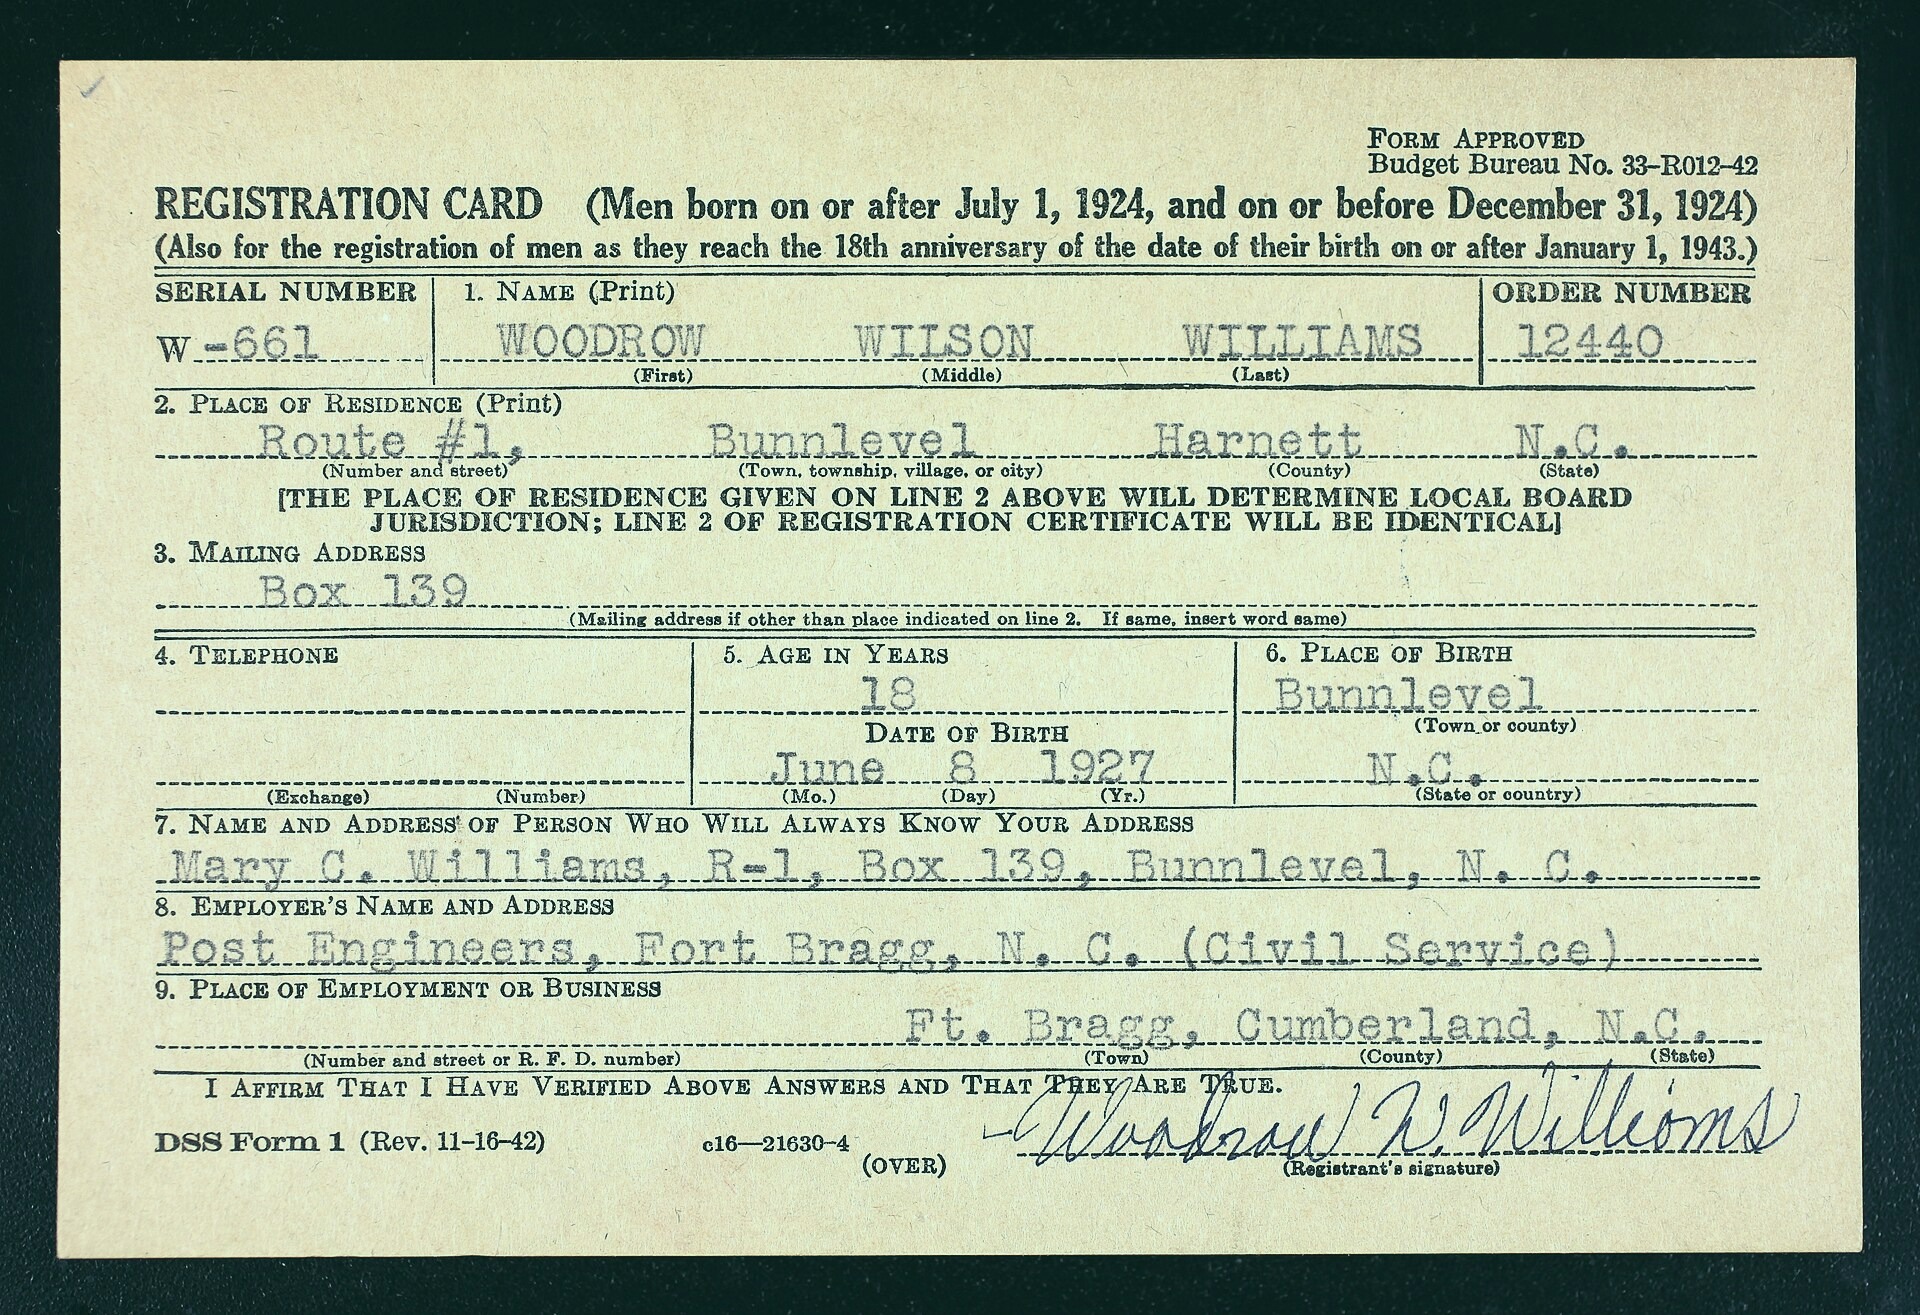 FORM APPROVED
Budget Bureau No. 33-R012-42
REGISTRATION CARD (Men born on or after July 1, 1924, and on or before December 31, 1924)
(Also for the registration of men as they reach the 18th anniversary of the date of their birth on or after January 1, 1943.)
SERIAL NUMBER 1. NAME (Print) ORDER NUMBER
W-661 WOODROW WILSON WILLIAMS 12440
(First) (Middle) (Last)
2. PLACE OF RESIDENCE (Print)
Route #1, Bunnlevel Harnett N.C.
(Number and street) (Town, township, village, or city) (County) (State)
[THE PLACE OF RESIDENCE GIVEN ON LINE 2 ABOVE WILL DETERMINE LOCAL BOARD
JURISDICTION; LINE 2 OF REGISTRATION CERTIFICATE WILL BE IDENTICAL]
3. MAILING ADDRESS
Box 139
(Mailing address if other than place indicated on line 2. If same, insert word same)
4. TELEPHONE 5. AGE IN YEARS 6. PLACE OF BIRTH
18 Bunnlevel
DATE OF BIRTH (Town or county)
June 8 1927 N.C.
(Exchange) (Number) (Mo.) (Day) (Yr.) (State or country)
7. NAME AND ADDRESS OF PERSON WHO WILL ALWAYS KNOW YOUR ADDRESS
Mary C. Williams, R-1, Box 139, Bunnlevel, N. C.
8. EMPLOYER'S NAME AND ADDRESS
Post Engineers, Fort Bragg, N. C. (Civil Service)
9. PLACE OF EMPLOYMENT OR BUSINESS
Ft. Bragg, Cumberland, N.C.
(Number and street or R. F. D. number) (Town) (County) (State)
I AFFIRM THAT I HAVE VERIFIED ABOVE ANSWERS AND THAT THEY ARE TRUE.
DSS Form 1 (Rev. 11-16-42) c16—21630-4 Woodrow W. Williams
(OVER) (Registrant's signature)